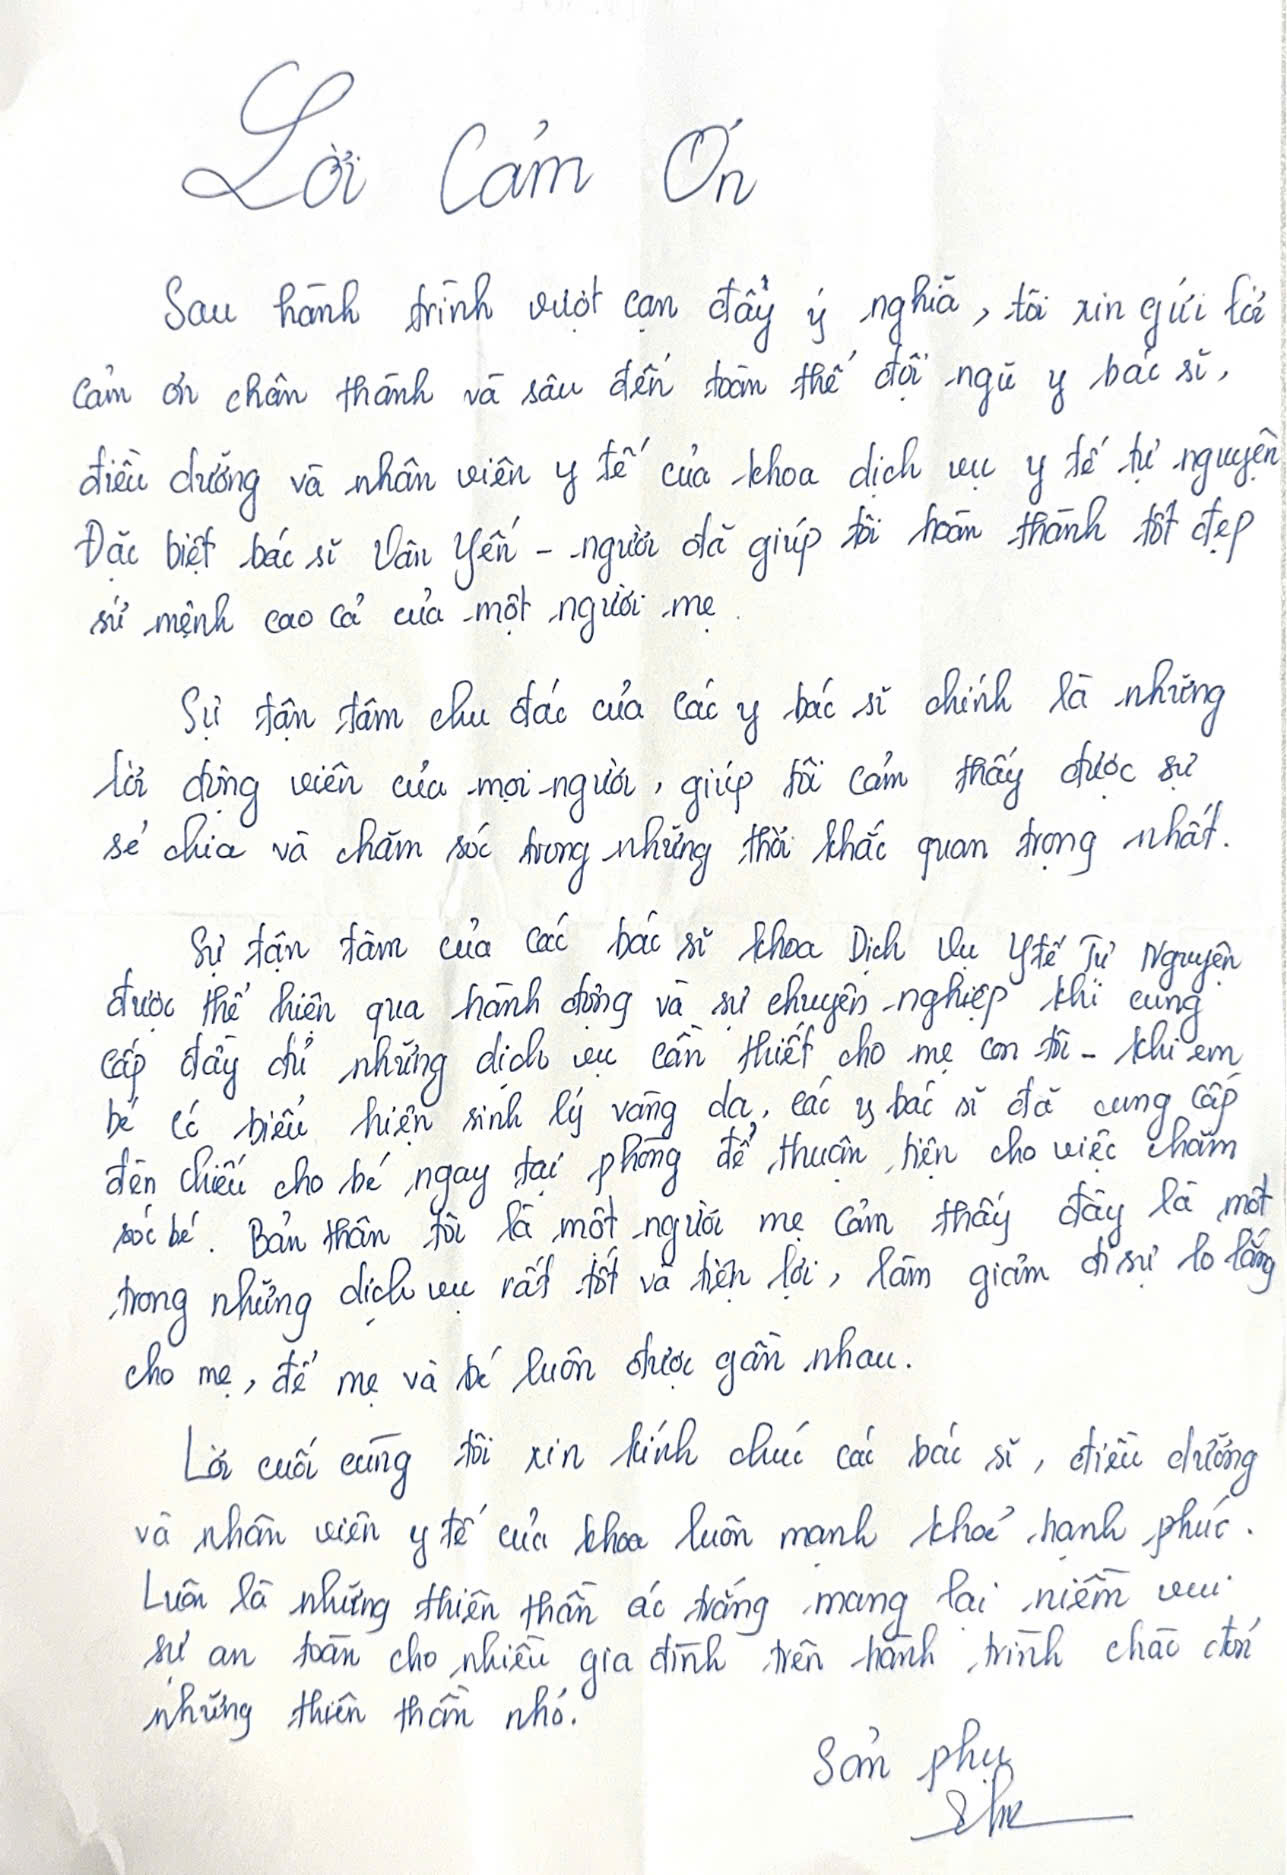 Lời Cảm Ơn
Sau hành trình vượt cạn đầy ý nghĩa, tôi xin gửi lời
cảm ơn chân thành và sâu đến toàn thể đội ngũ y bác sĩ,
điều dưỡng và nhân viên y tế của khoa dịch vụ y tế tự nguyện
Đặc biệt bác sĩ Vân Yến - người đã giúp tôi hoàn thành tốt đẹp
sứ mệnh cao cả của một người mẹ.
Sự tận tâm chu đáo của các y bác sĩ chính là những
lời động viên của mọi người, giúp tôi cảm thấy được sự
sẻ chia và chăm sóc trong những thời khắc quan trọng nhất.
Sự tận tâm của các bác sĩ khoa Dịch Vụ Y tế Tự Nguyện
được thể hiện qua hành động và sự chuyên nghiệp khi cung
cấp đầy đủ những dịch vụ cần thiết cho mẹ con tôi - khi em
bé có biểu hiện sinh lý vàng da, các y bác sĩ đã cung cấp
đèn chiếu cho bé ngay tại phòng để thuận tiện cho việc chăm
sóc bé. Bản thân tôi là một người mẹ cảm thấy đây là một
trong những dịch vụ rất tốt và tiện lợi, làm giảm đi sự lo lắng
cho mẹ, để mẹ và bé luôn được gần nhau.
Lời cuối cùng tôi xin kính chúc các bác sĩ, điều dưỡng
và nhân viên y tế của khoa luôn mạnh khoẻ hạnh phúc.
Luôn là những thiên thần áo trắng mang lại niềm vui
sự an toàn cho nhiều gia đình trên hành trình chào đón
những thiên thần nhỏ.
Sản phụ